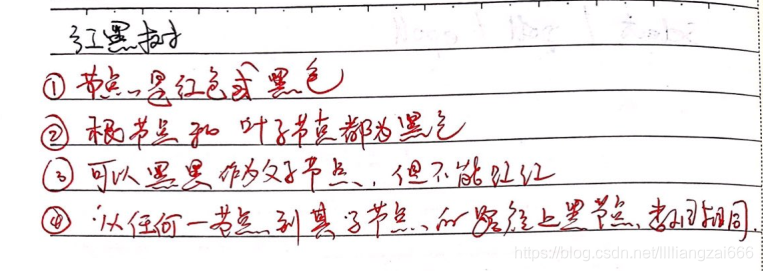 红黑树
① 节点是红色或黑色
② 根节点和叶子节点都为黑色
③ 可以黑黑作为父子节点，但不能红红
④ 从任何一节点到其子节点的路径上黑节点数相同.
https://blog.csdn.net/llliangzai666